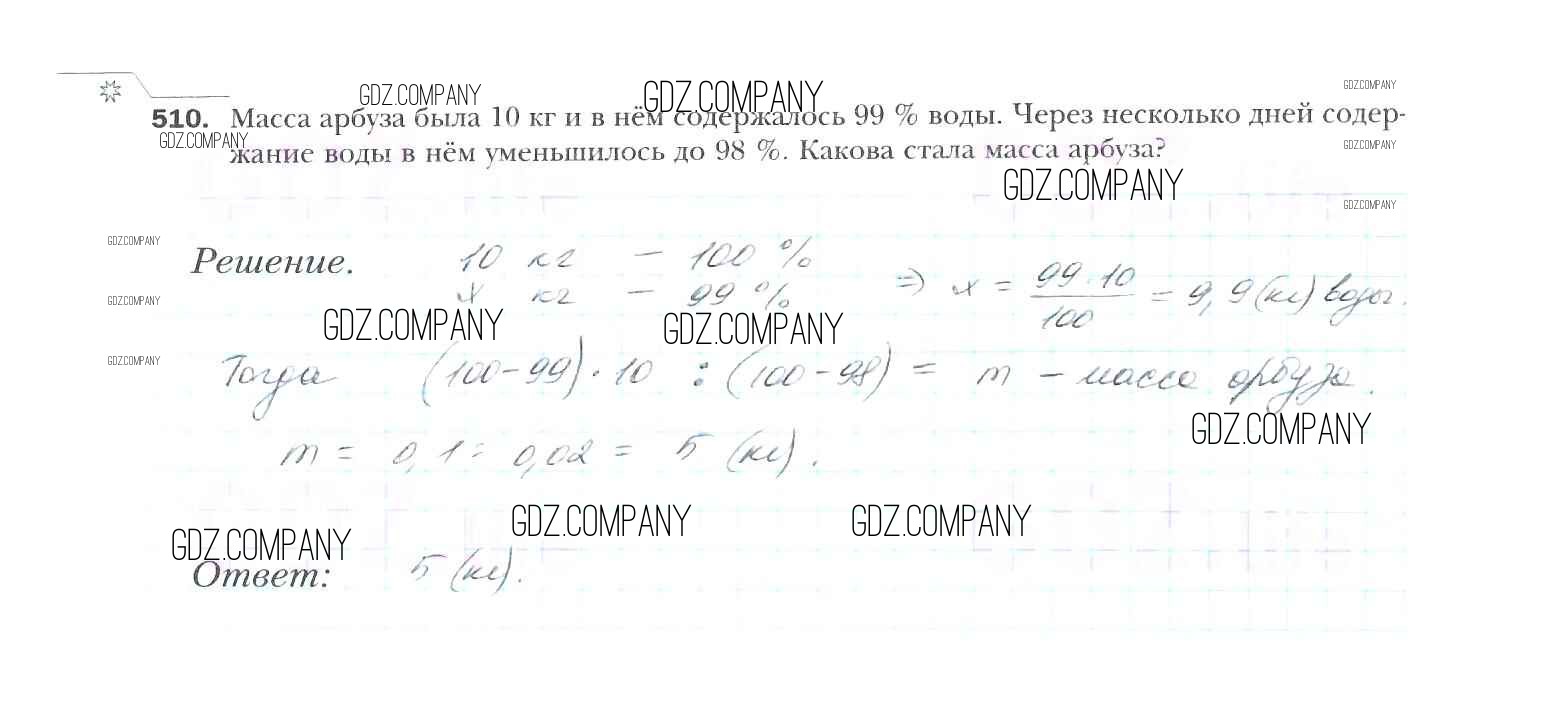 GDZ.COMPANY GDZ.COMPANY GDZ.COMPANY
510. Масса арбуза была 10 кг и в нём содержалось 99 % воды. Через несколько дней содер-
GDZ.COMPANY GDZ.COMPANY
жание воды в нём уменьшилось до 98 %. Какова стала масса арбуза?
GDZ.COMPANY GDZ.COMPANY
GDZ.COMPANY
Решение. 10 кг – 100 %
х кг – 99 % => x = 99·10/100 = 9,9 (кг) воды.
GDZ.COMPANY
GDZ.COMPANY GDZ.COMPANY
GDZ.COMPANY
Тогда (100-99)·10 : (100-98) = m – масса арбуза.
GDZ.COMPANY
m = 0,1 : 0,02 = 5 (кг).
GDZ.COMPANY GDZ.COMPANY
GDZ.COMPANY
Ответ: 5 (кг).